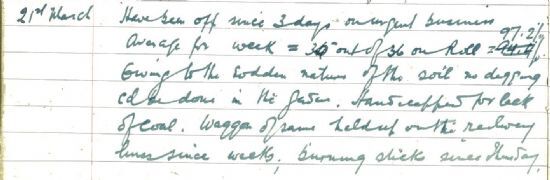 21st March Have been off since 3 days on urgent business
Average for week = 35 out of 36 on Roll = 97.2%
Owing to the sodden nature of the soil no digging
cd be done in the garden. Handicapped for lack
of coal. Waggon of same held up on the railway
lines since weeks, burning sticks since Thursday.